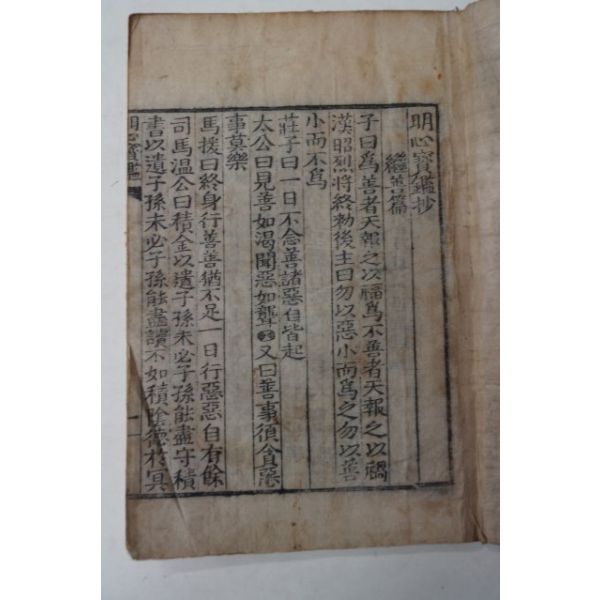 明心寶鑑抄
繼善篇
子曰爲善者天報之以福爲不善者天報之以禍
漢昭烈將終勑後主曰勿以惡小而爲之勿以善
小而不爲
莊子曰一日不念善諸惡自皆起
太公曰見善如渴聞惡如聾又曰善事須貪惡
事莫樂
馬援曰終身行善善猶不足一日行惡惡自有餘
司馬溫公曰積金以遺子孫未必子孫能盡守積
書以遺子孫未必子孫能盡讀不如積陰德於冥
明心寶鑑
一